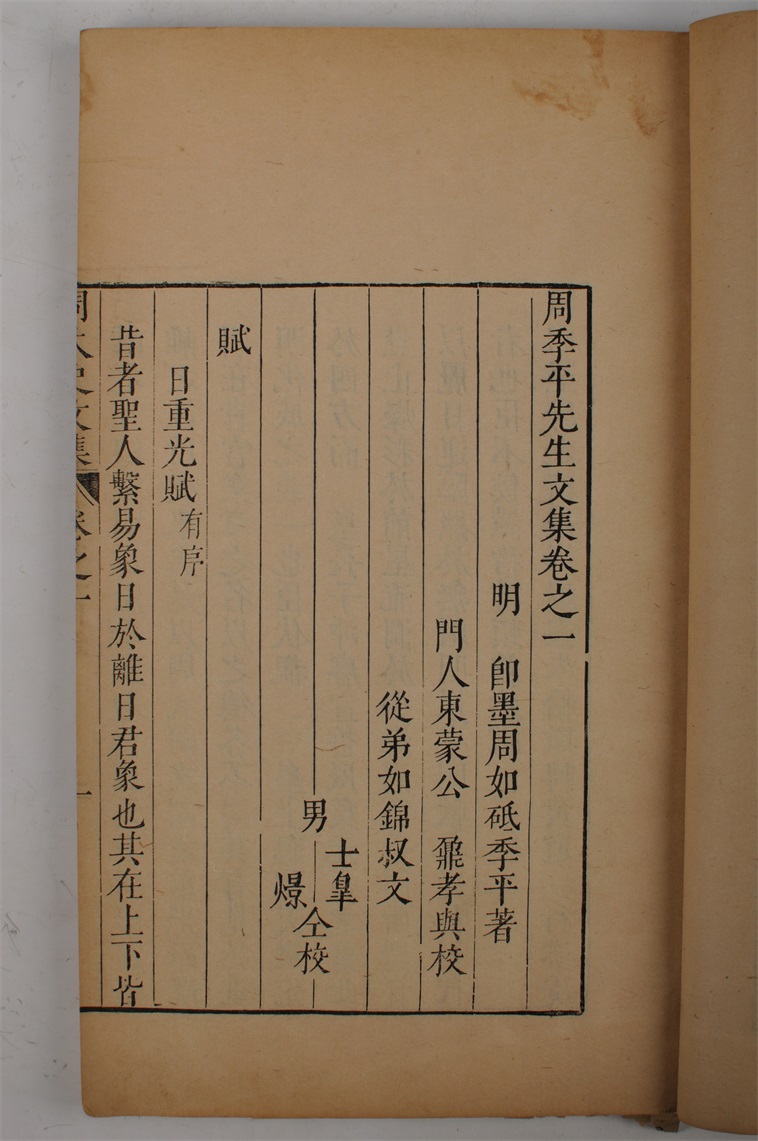 周季平先生文集卷之一
明 即墨周如砥季平著
門人東蒙公鼐孝與校
從弟如錦叔文
男 士皐 燝 仝校
賦
日重光賦有序
昔者聖人繫易象日於離日君象也其在上下皆
周太史文集 卷之一 一